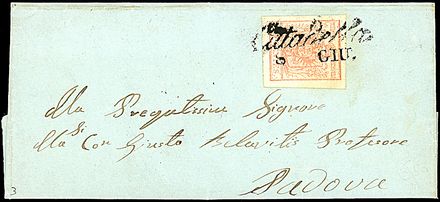 Cittadella
8 GIU.
Alla Pregiatissima Signora
Con Giusto Bellavitis Professore
Padova
3